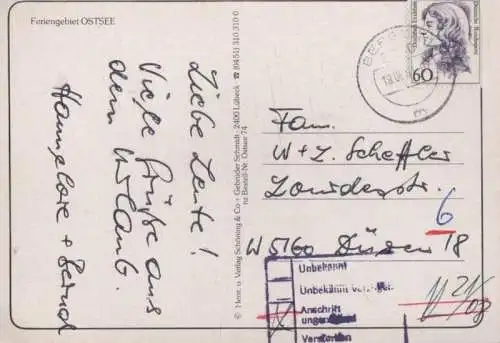 Feriengebiet OSTSEE
Liebe Leute!
Viele Grüße aus
dem Urlaub.
Hannelore + Bernd
© Herst. u. Verlag Schöning & Co + Gebrüder Schmidt, 2400 Lübeck ☎ (0451) 310 310 0
nz Bestell-Nr. Ostsee 74
60
Fam.
W + Z. Scheffler
Lourdesstr.
6
W 5160 Düren 18
Unbekannt
Unbekannt verzogen
Anschrift
ungenügend
Verstorben
21/08